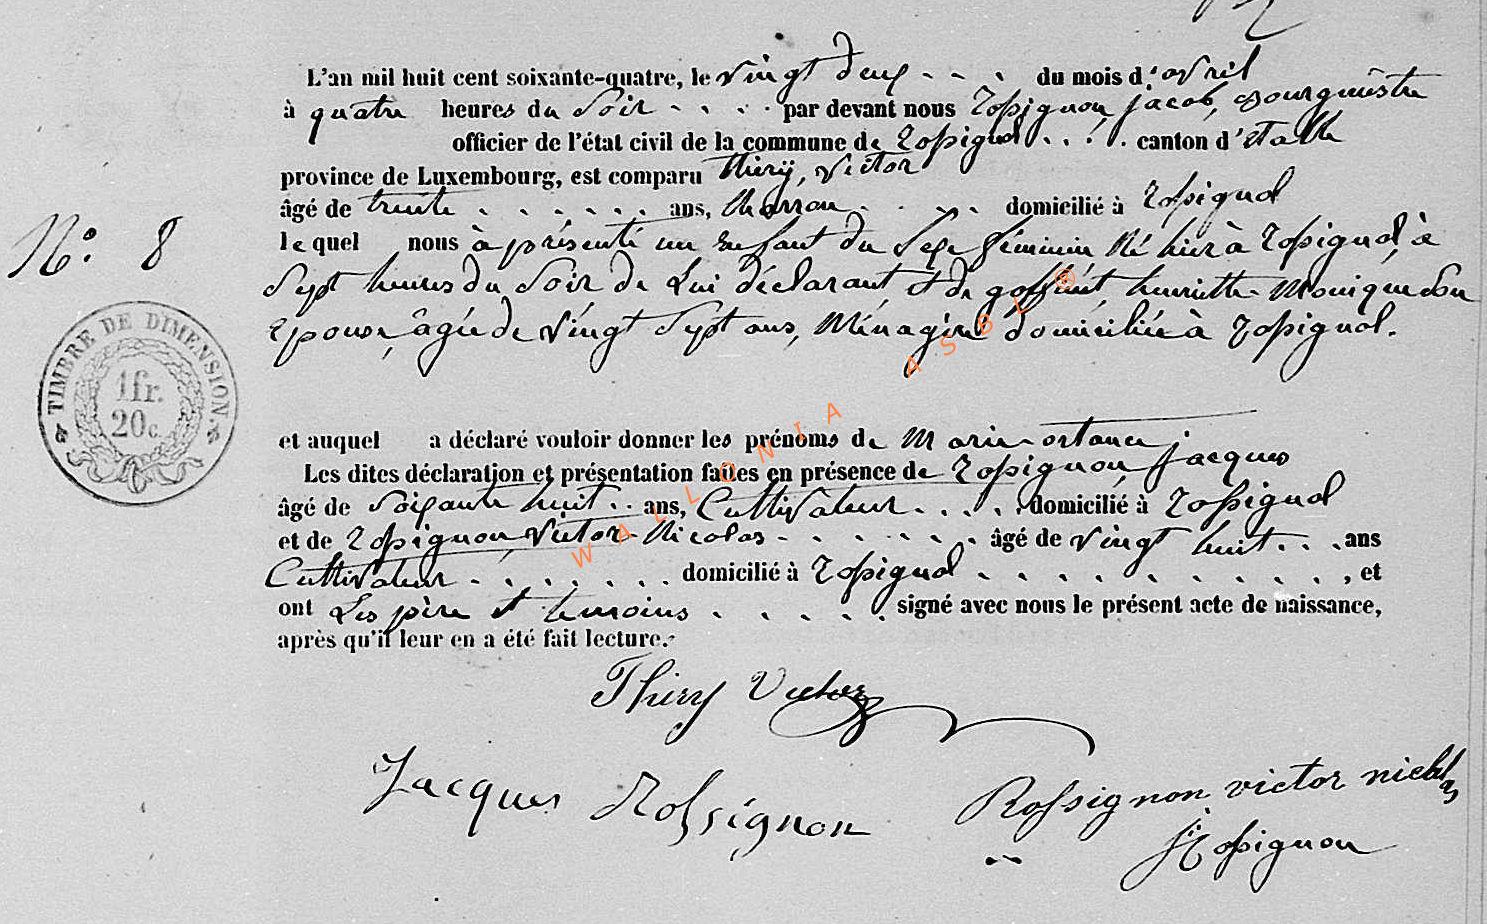 L'an mil huit cent soixante-quatre, le vingt deux du mois d'avril
à quatre heures du Soir par devant nous Rossignon jacob, Bourgmestre
officier de l'état civil de la commune de Rossignol canton d'Etalle
province de Luxembourg, est comparu Thiry, Victor
âgé de trente ans, Marron domicilié à Rossignol
N.° 8
lequel nous à présenté un Enfant du Sexe féminin Né hier à Rossignol à
Sept heures du Soir de Lui déclarant et de goffinet, henriette Monique Son
Epouse, âgée de Vingt Sept ans, Ménagère domiciliée à Rossignol.
TIMBRE DE DIMENSION.
1fr.
20c
et auquel a déclaré vouloir donner les prénoms de Marie
Les dites déclaration et présentation faites en présence de Rossignon, Jacques
âgé de Soixante huit ans, Cultivateur domicilié à Rossignol
et de Rossignon, Victor Nicolas âgé de vingt huit ans
Cultivateur domicilié à Rossignol, et
ont Les père et temoins signé avec nous le présent acte de naissance,
après qu'il leur en a été fait lecture.
WALLONIA ASBL ®
Thiry Victor
Jacques Rossignon
Rossignon victor nicolas
J Rossignon